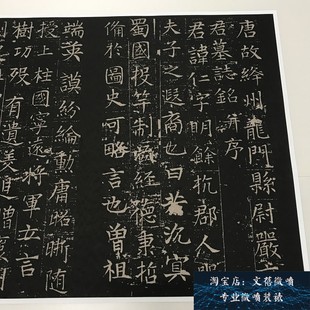 唐故絳州龍門縣尉嚴
君墓誌銘并序
君諱仁字明餘杭郡人
夫子之遐裔也曰若沉冥
蜀國投竿制經德秉哲
俻於圖史可略言也曾祖
端英謨紛綸勳庸昭晰随
授上柱國寧遠將軍立言
樹功歿有遺
淘宝店：文蓓微喷
专业微喷装裱